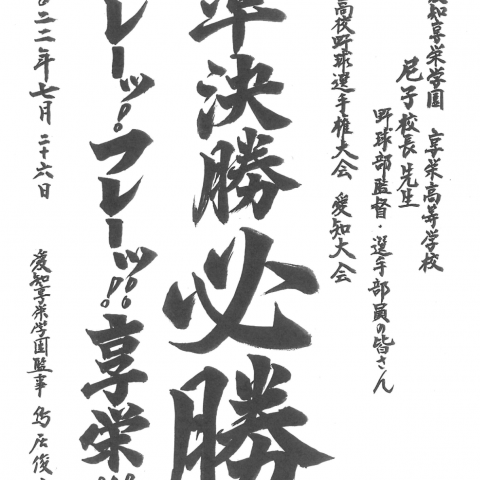 愛知享栄学園 享栄高等学校
尼子校長先生
野球部監督・選手部員の皆さん
高校野球選手権大会 愛知大会
準決勝必勝
レーッ!フレーッ!!享栄!!
二〇二二年七月二十六日
愛知享栄学園監事 鳥居俊